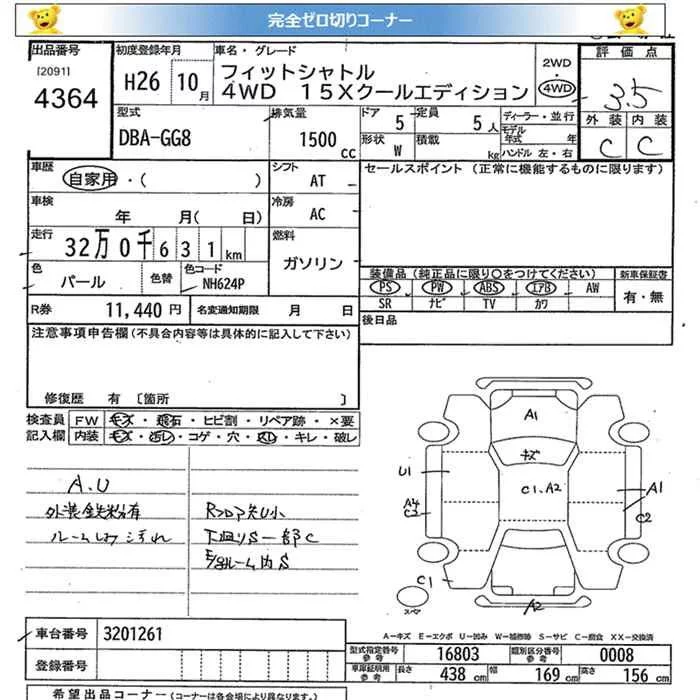 完全ゼロ切りコーナー
出品番号 初度登録年月 車名・グレード 2WD・4WD 評価点
[2091] 4364 H26 10月 フィットシャトル
4WD 15Xクールエディション 3.5
型式 排気量 ドア 定員 ディーラー・並行 外装 内装
DBA-GG8 1500cc 5 5人 モデル年式 年 C C
形状 W 積載 kg ハンドル 左・右
車歴 自家用・( ) シフト AT セールスポイント (正常に機能するものに限ります)
車検 年 月( 日) 冷房 AC
走行 32万0千631km 燃料 ガソリン
色 パール 色替 色コード NH624P
装備品(純正品に限り○をつけてください) 新車保証書
PS PW ABS エアB AW 有・無
SR ナビ TV カワ
R券 11,440円 名変通知期限 月 日 後日品
注意事項申告欄(不具合内容等は具体的に記入して下さい)
修復歴 有 [箇所 ]
検査員 FW キズ・飛石・ヒビ割・リペア跡・×要
記入欄 内装 キズ・汚レ・コゲ・穴・スレ・キレ・破レ
A.U
外装鉄粉有 Rフロア穴小
ルーム内汚れ 下廻りS一部C
E/gルーム内S
A1
キズ
U1 C1.A2 A1
A4 C3 C2
C1
スペア A2
A-キズ E-エクボ U-凹み W-補修跡 S-サビ C-腐食 XX-交換済
車台番号 3201261
型式指定番号 参考 16803 類別区分番号 参考 0008
登録番号
車庫証明用 参考 長さ 438cm 幅 169cm 高さ 156cm
希望出品コーナー(コーナーは各会場により異なります。)